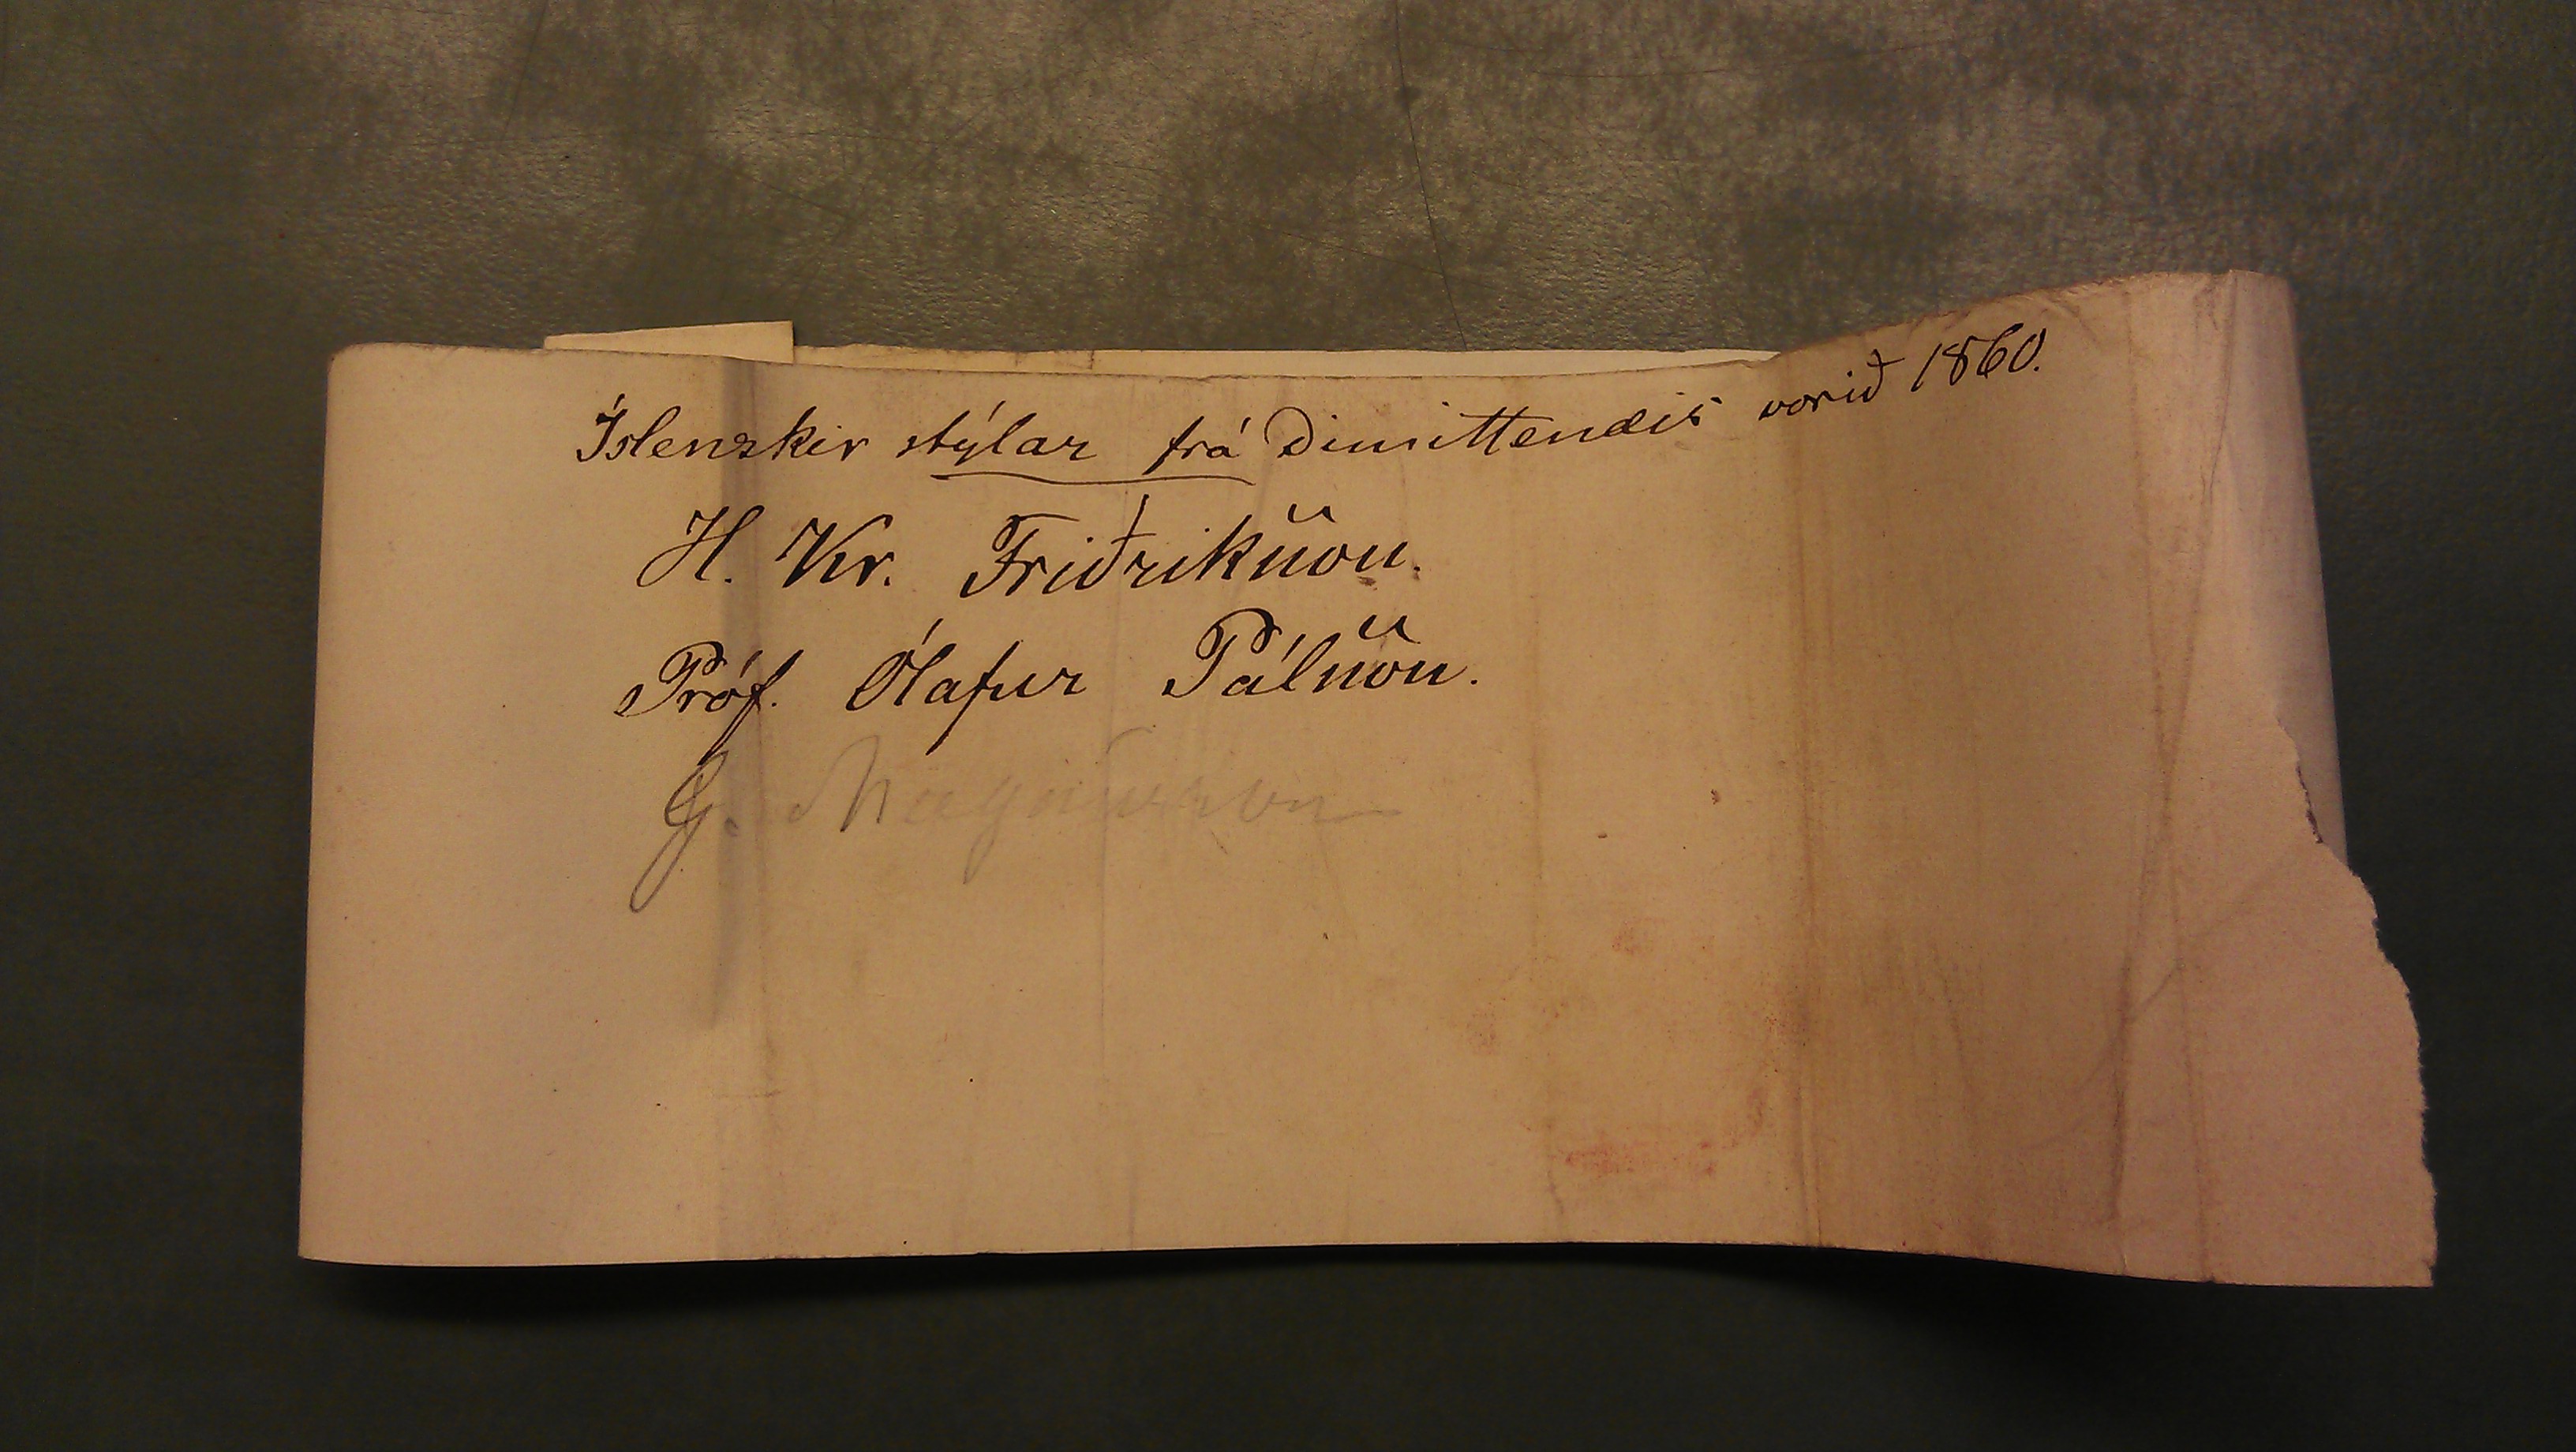 Íslenzkir stýlar frá Dimittendis vorið 1860.
H. Kr. Friðriksson.
Próf. Ólafur Pálsson.
G. Magnússon